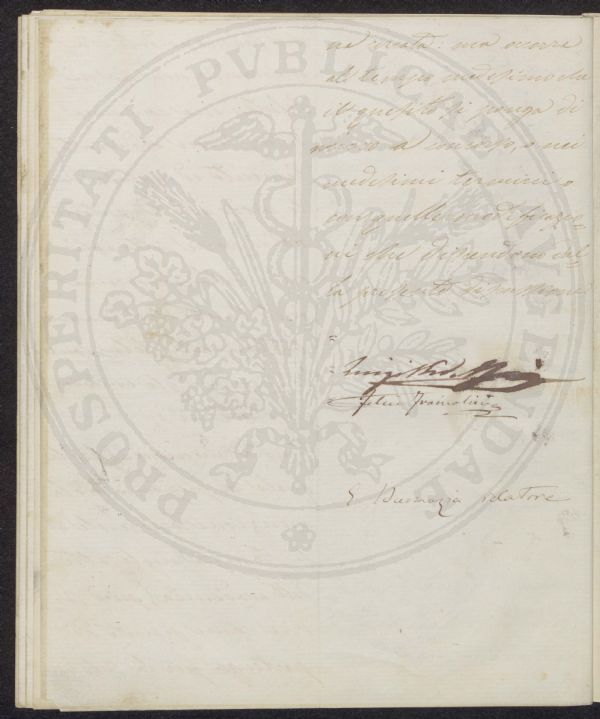 PROSPERITATI PVBLICAE AVGENDAE
ne creata: ma occorre
al tempo medesimo che
il quesito si ponga di
nuovo a concorso, o nei
medesimi termini o
con quelle modificazio-
ni che dipendono dal-
la presente discussione
Luigi
Felice Francolini
E Buonazia relatore